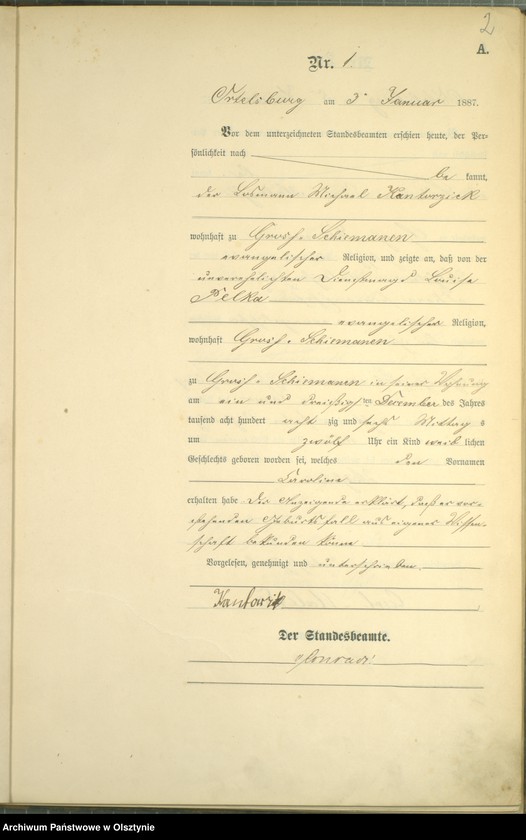 2
A.
Nr. 1.
Ortelsburg am 3. Januar 1887.
Vor dem unterzeichneten Standesbeamten erschien heute, der Per-
sönlichkeit nach
be kannt,
der Losmann Michael Kantorzick
wohnhaft zu Gross-Schiemanen
evangelischer Religion, und zeigte an, daß von der
unverehelichten Dienstmagd Louise
Pelka
evangelischer Religion,
wohnhaft Gross-Schiemanen
zu Gross-Schiemanen in seiner Wohnung
am ein und dreißigsten December des Jahres
tausend acht hundert acht zig und sechs Mittags
um zwölf Uhr ein Kind weib lichen
Geschlechts geboren worden sei, welches den Vornamen
Caroline
erhalten habe Der Anzeigende erklärt, daß er vor-
stehenden Geburtsfall aus eigener Wissen-
schaft bekunden könne
Vorgelesen, genehmigt und unterschrieben.
Der Standesbeamte.
Conradi
Archiwum Państwowe w Olsztynie